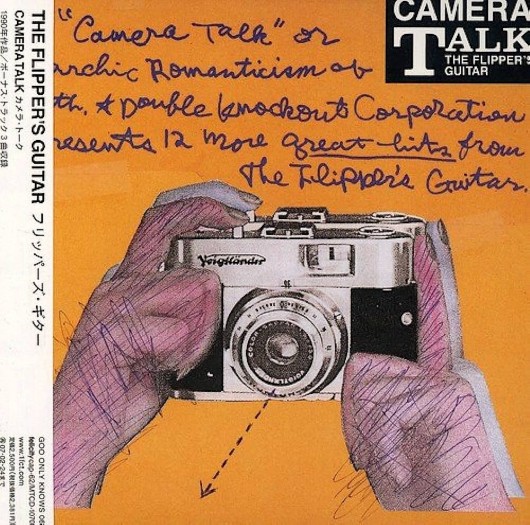 CAMERA
TALK
THE FLIPPER'S
GUITAR
"Camera Talk" or
archic Romanticism of
th. A Double Knockout Corporation
resents 12 more great-hits from
The Flipper's Guitar.
Voigtländer
THE FLIPPER'S GUITAR フリッパーズ・ギター
CAMERA TALK カメラ・トーク
1990年作品／ボーナス・トラック3曲収録
GOD ONLY KNOWS
www.1fct.com
07-02-24まで